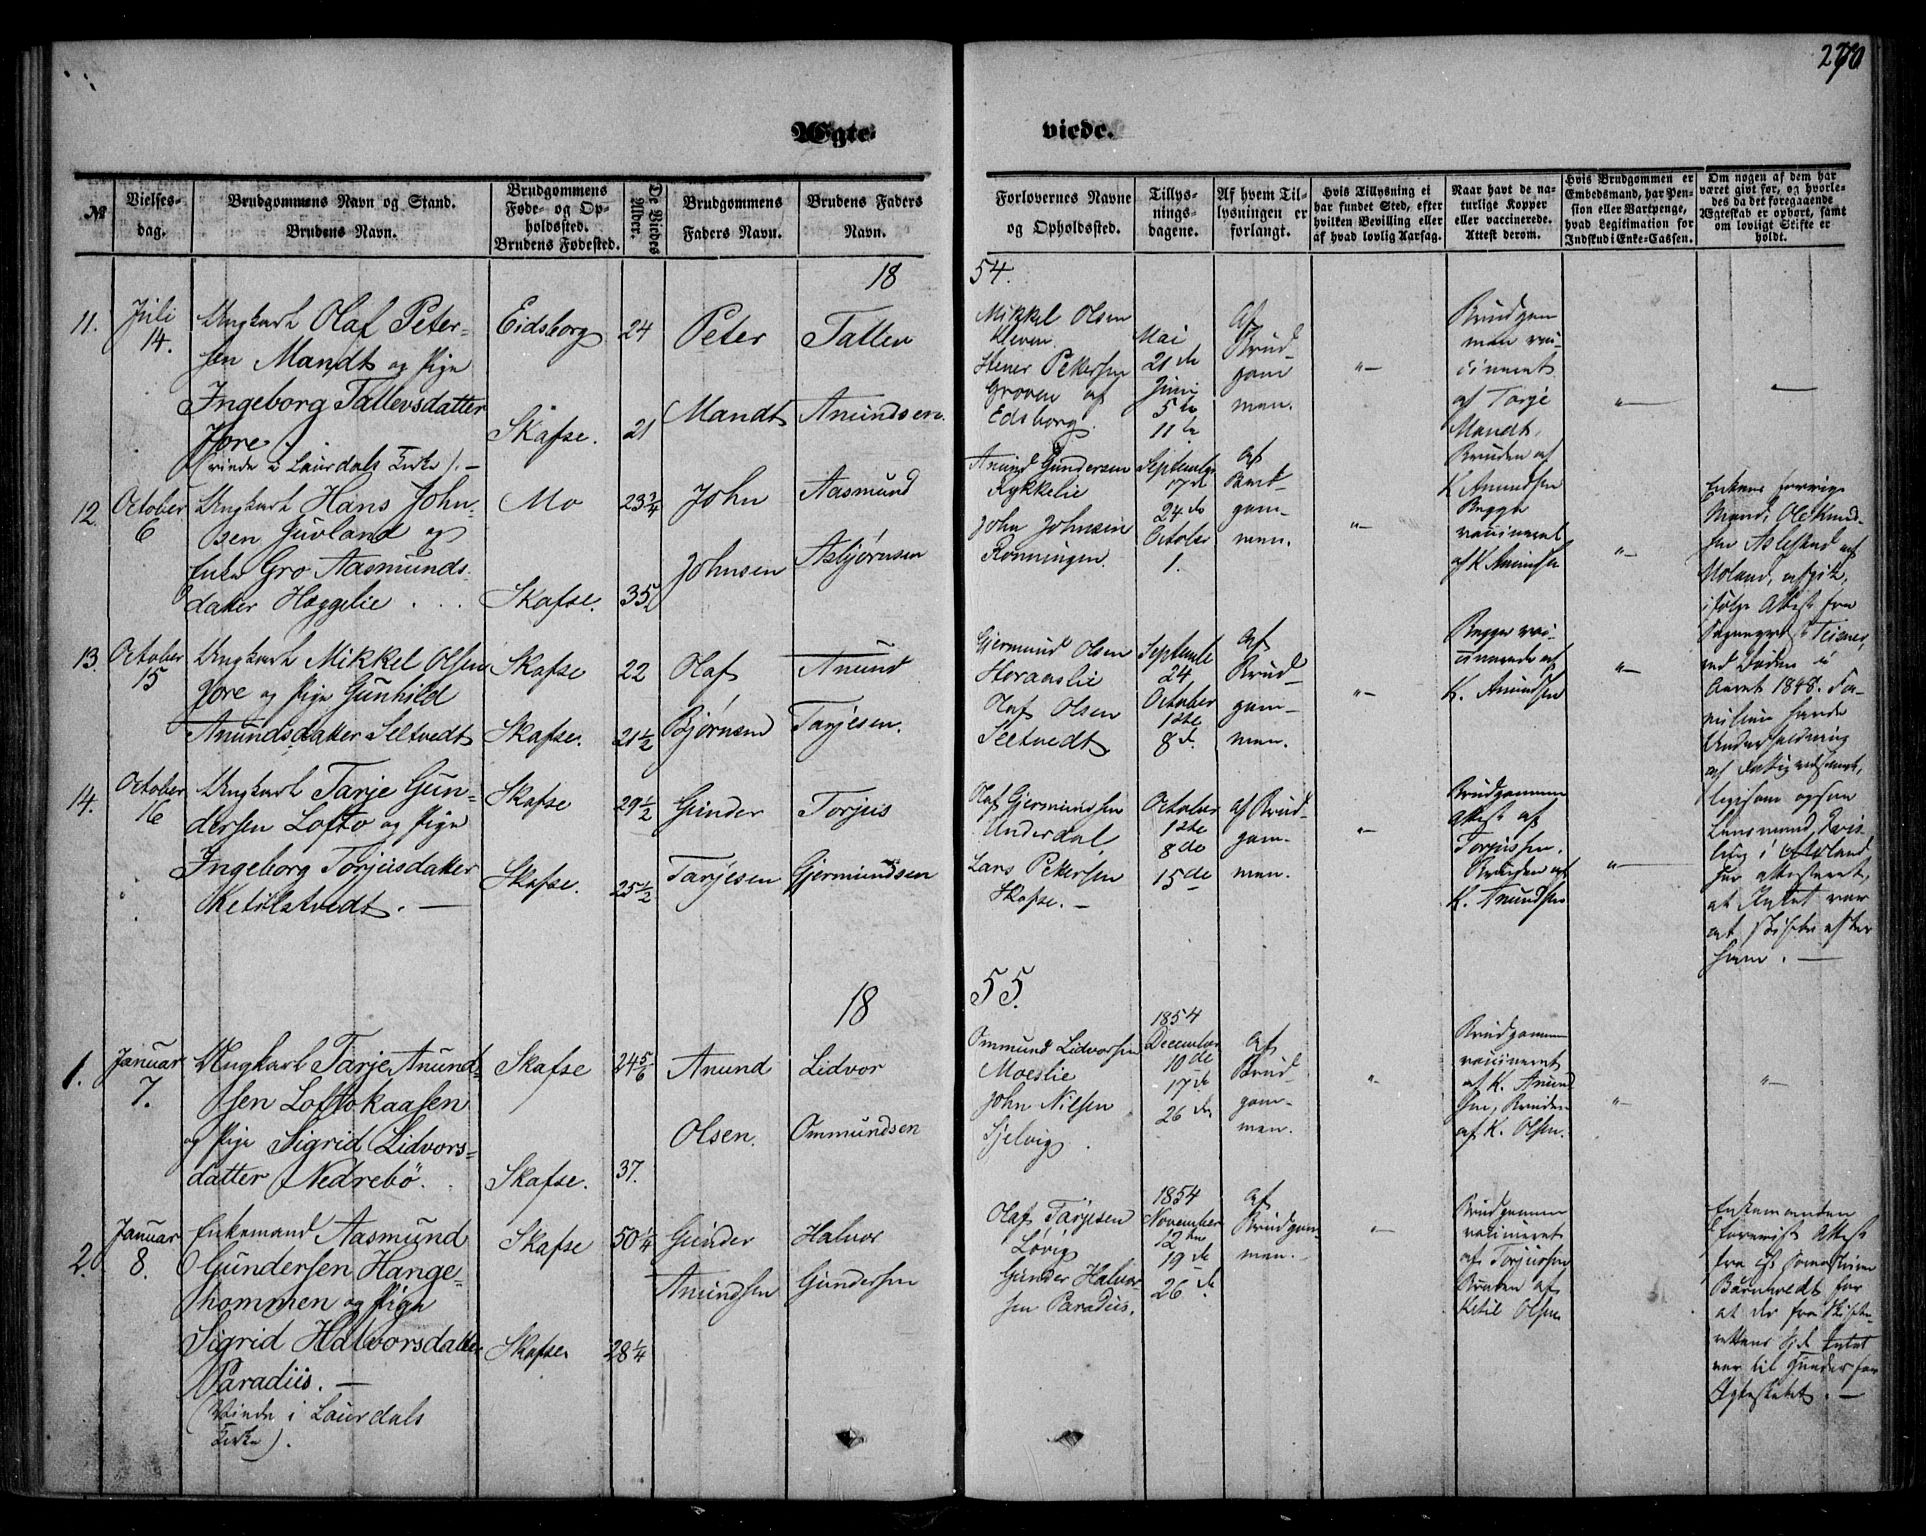 270
Ægteviede.
№
Vielsesdag.
Brudgommens Navn og Stand.
Brudens Navn.
Brudgommens Føde- og Opholdssted.
Brudens Fødested.
De Viedes Alder.
Brudgommens Faders Navn.
Brudens Faders Navn.
Forlovernes Navne og Opholdssted.
Tillysningsdagene.
Af hvem Tillysningen er forlangt.
Hvis Tillysning ei har fundet Sted, efter hvilken Bevilling eller af hvad lovlig Aarsag.
Naar havt de naturlige Kopper eller vaccinerede. Attest derom.
Hvis Brudgommen er Embedsmand, har Pension eller Vartpenge, hvad Legitimation for Indskud i Enke-Cassen.
Om nogen af dem har været givt før, og hvorledes da det foregaaende Ægteskab er ophørt, samt om lovligt Skifte er holdt.
18 54.
11.
Juli
14.
Ungkarl Olaf Peter-
sen Mandt og Pige
Ingeborg Tallevsdatter
Jore
(viede i Laurdals Kirke). —
Eidsborg
Skafse.
24
21
Peter
Mandt
Tallev
Anundsen.
Mikkel Olsen
Kleven
Stener Pettersen
Groven af
Edsborg.
Mai
21de
Juni
5te
11te
Af
Brud-
gom
men.
"—
Brudgom
men vac-
cineret
af Tarje
Mandt,
Bruden af
K Anundsen
"—
—
12.
October
6
Ungkarl Hans John-
sen Juvland og
Enke Gro Aasmunds-
datter Heggelie . . .
Mo
Skafse.
23¾
35
John
Johnsen
Aasmund
Asbjørnsen
Anund Gundersen
Rykkelie
John Johnsen
Rønningen
September
17de
24de
October
1.
af
Brud-
gom-
men.
"—
Begge
vaccineret
af K Anundsen
"—
Enkens forrige
Mand, Ole Knud-
sen
Moland, afgik,
ifølge Attest fra
Sognepræst Teisner,
ved Døden i
Aaret 1848. Fa-
milien havde
Understøttning
af Fattigvæsenet,
ligesom ogsaa
Lensmand
i Moland
har attesteret,
at Intet var
at skifte efter
ham. —
13.
October
15
Ungkarl Mikkel Olsen
Jore og Pige Gunhild
Anundsdatter Seltvedt
Skafse
Skafse.
22
21½
Olaf
Bjørnsen
Anund
Tarjesen.
Gjermund Olsen
Horaaslie
Olaf Olsen
Seltvedt
September
24
October
1ste
8de.
Af
Brud-
gom-
men.
"—
Begge vac-
cinerede af
K. Anundsen
"—
14.
October
16
Ungkarl Tarje Gun-
dersen Lofto og Pige
Ingeborg Torjusdatter
Ketilstvedt. —
Skafse
Skafse.
29½
25½
Gunder
Tarjesen
Torjus
Gjermundsen
Olaf Gjermundsen
Underdal,
Lars Pettersen
Skafse. —
October
1ste
8de
15de
af Brud-
gom-
men.
"—
Brudgommen
attest af
Torjussen.
Bruden af
K. Anundsen
"—
18 55.
1.
Januar
7.
Ungkarl Tarje Anund-
sen Loftokaasen
og Pige Sigrid Lidvors-
datter Nedrebö.
Skafse
Skafse.
24⅚
37.
Anund
Olsen.
Lidvor
Ommundsen
Ommund Lidvorsen
Moeslie
John Nilsen
Sjelvig
1854
December
10de
17de
26de
af
Brud-
gom-
men.
"—
Brudgommen
vaccineret
af K. Anund
sen, Bruden
af K. Olsen.
"—
"—
2.
Januar
8.
Enkemand Aasmund
Gundersen Hange-
hommen og Pige
Sigrid Halvorsdatter
Paradiis. —
(Viede i Laurdals
Kirke).
Skafse
Skafse.
50¼
28¼
Gunder
Anundsen
Halvor
Gundersen
Olaf Tarjesen
Løvig
Gunder Halvor
sen Paradiis.
1854
November
12te
19de
26de.
af
Brudgom-
men.
"—
Brudgommen
vaccineret
af Torjussen
Bruden af
Ketil Olsen
Enkemanden
foreviist Attest
fra
Barnvedt for
at der fra Skifte-
rettens Side Intet
var til Hinder for
Ægteskabet. —